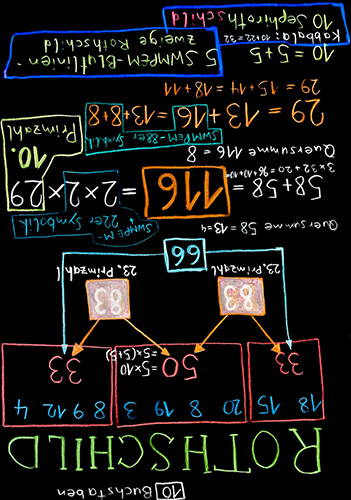 10 Buchstaben
ROTHSCHILD
18 15 20 8 19 3 8 9 12 4
33 50 =5×10 33
=5×(5+5)
83 83
23. Primzahl 23. Primzahl
66
Quersumme 58 = 13 = 4
SWMPEM-
22er Symbolik
58+58 = 116 = 2×2×29
10.
Primzahl
Quersumme 116 = 8
SWMPEM-88er
Symbolik
29 = 13+16 = 13+8+8
29 = 15+14 = 18+11
10 = 5+5
5 SWMPEM-Blutlinien
zweige Rothschild
Kabbala: 10+22=32
10 Sephiroth
schild